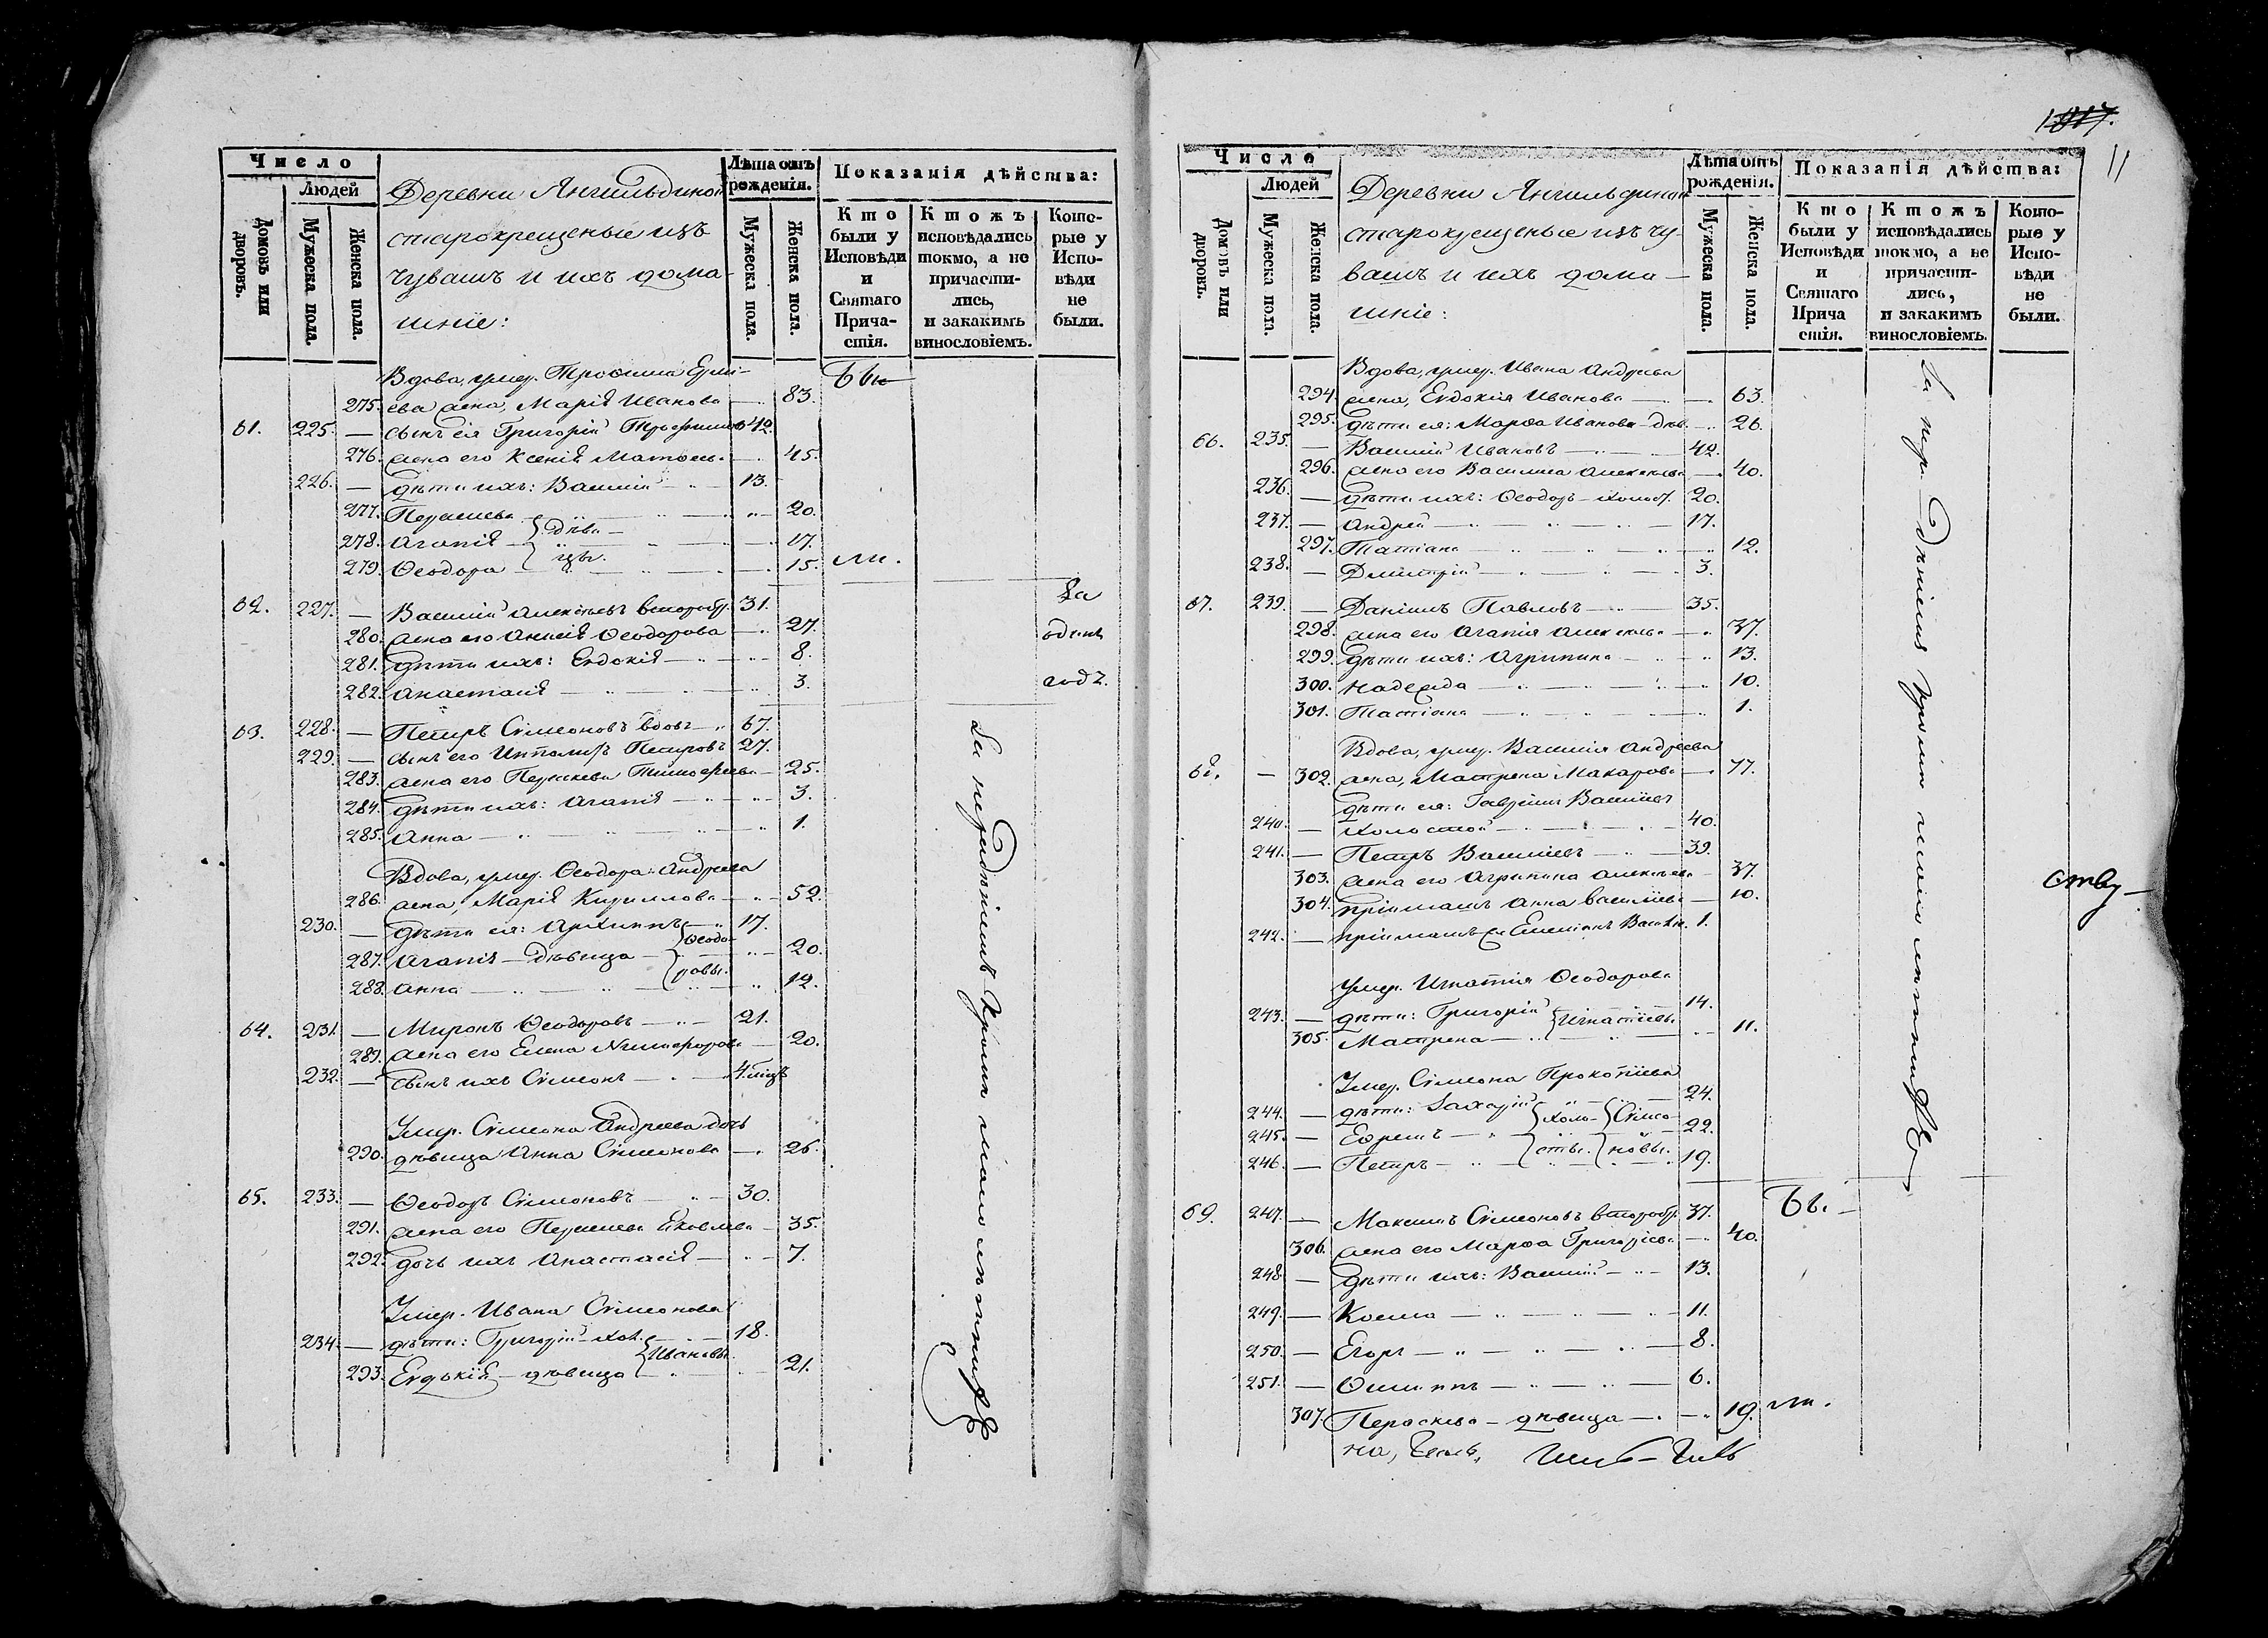 Число
Людей
Домовъ или дворовъ.
Мужеска пола.
Женска пола.
Деревни Янгильдиной
старокрещеные изъ
чувашъ и ихъ дома-
шніе:
Лѣта отъ рожденія.
Мужеска пола.
Женска пола.
Показанія дѣйства:
Кто были у Исповѣди и Святаго Прича-стія.
Ктожъ исповѣдались токмо, а не причасти-лись, и закакимъ винословіемъ.
Кото-рые у Испо-вѣди не были.
Вдова, умер. Трофима Ерми- бы-
275. ева жена, Марія Иванова 83.
61. 225. — сынъ ея Григорій Трофимовъ 42.
276. жена его Ксенія 45.
226. — дѣти ихъ: Василій 13.
277. Параскева 20.
278. Агапія дѣви- 17.
279. Ѳеодора цы. 15. ли.
62. 227. — Василій Алексѣевъ второбр. 31. За
280. жена его Анисія Ѳеодорова 27. одинъ
281. дѣти ихъ: Евдокія 8.
282. Анастасія 3. годъ.
63. 228. — Петръ Сімеоновъ вдовъ 67.
229. — сынъ его Ипполитъ Петровъ 27.
283. жена его Параскева Тимоѳеева 25.
284. дѣти ихъ: Агапія 3.
285. Анна 1.
Вдова, умер. Ѳеодора Андреева
286. жена, Марія Кириллова 52.
230. — дѣти ея: Архиппъ 17.
287. Агапія — дѣвица Ѳеодо- 20.
288. Анна ровы. 12.
64. 231. — Миронъ Ѳеодоровъ 21.
289. жена его Елена Никифорова 20.
232. — сынъ ихъ Сімеонъ 4. мцъ
Умер. Сімеона Андреева дочь
290. дѣвица Анна Сімеонова 26.
65. 233. — Ѳеодоръ Сімеоновъ 30.
291. жена его Параскева Яковлева 35.
292. дочь ихъ Анастасія 7.
Умер. Ивана Сімеонова
234. — дѣти: Григорій хол. 18.
293. Евдокія — дѣвица Ивановы. 21.
За нерадѣніемъ кромѣ малолѣтнихъ
11
Число
Людей
Домовъ или дворовъ.
Мужеска пола.
Женска пола.
Деревни Янгильдиной
старокрещеные изъ чу-
вашъ и ихъ дома-
шніе:
Лѣта отъ рожденія.
Мужеска пола.
Женска пола.
Показанія дѣйства:
Кто были у Исповѣди и Святаго Прича стія.
Ктожъ исповѣдались токмо, а не причасти-лись, и закакимъ винословіемъ.
Кото-рые у Испо-вѣди не были.
Вдова, умер. Ивана Андреева
294. жена, Евдокія Иванова 63.
295. дѣти ея: Марѳа Иванова дѣв. 26.
66. 235. — Василій Ивановъ 42.
296. жена его Василиса Алексѣева 40.
236. — дѣти ихъ: Ѳеодоръ — холост. 20.
237. — Андрей 17.
297. Татіана 12.
238. — Димитрій 3.
67. 239. — Даніилъ Павловъ 35.
298. жена его Агапія Алексѣева 37.
299. дѣти ихъ: Агрипина 13.
300. Надежда 10.
301. Татіана 1.
Вдова, умер. Василія Андреева
68. — 302. жена, Матрена Макарова 77.
дѣти ея: Гавріилъ Василіевъ
240. — холостой 40.
241. — Петръ Василіевъ 39.
303. жена его Агрипина Алексѣева 37.
304. пріимышъ Анна Василіева 10.
242. — пріимышъ Емеліанъ 1.
Умер. Игнатія Ѳеодорова
243. — дѣти: Григорій Игнатіевы 14.
305. Матрена 11.
Умер. Сімеона Прокопіева
244. — дѣти: Захарій холо- Сімео- 24.
245. — Ефремъ сты. новы. 22.
246. — Петръ 19.
69. 247. — Максимъ Сімеоновъ второбр. 37. бы. —
306. жена его Марѳа Григорьева 40.
248. — дѣти ихъ: Василій 13.
249. — Козма 11.
250. — Егоръ 8.
251. — Филиппъ 6.
307. Параскева — дѣвица 19. ли.
За нерадѣніемъ кромѣ малолѣтнихъ
ству —